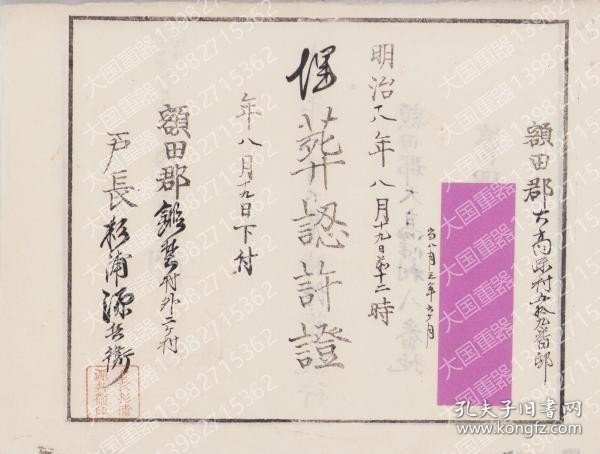 額田郡大高味村五拾九番邸
当八月三年六ヶ月
明治十八年八月十九日第十二時
埋葬認許證
年八月十九日下付
額田郡鍛埜村外三ヶ村
戸長杉浦源兵衛
大国重器13982715362
孔夫子旧书网
www.kongfz.com